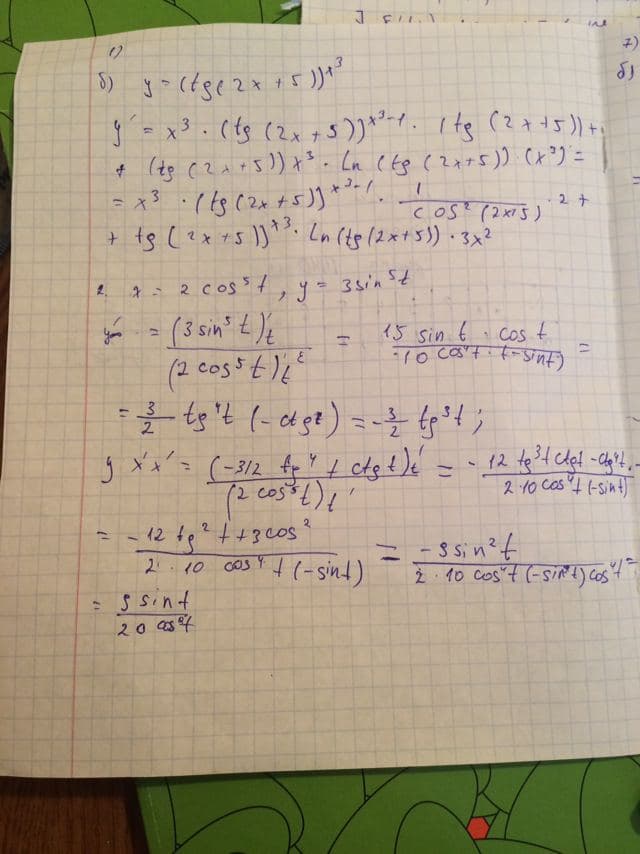 1)
б) y = (tg(2x + 5))^x^3
y' = x^3 · (tg (2x + 5))^x^3-1 · (tg (2x+5)) +
+ (tg (2x+5)) x^3 · Ln (tg (2x+5)) (x^3) =
= x^3 · (tg (2x+5))^x^3-1 · 1 / cos^2 (2x+5) · 2 +
+ tg (2x+5))^x^3 · Ln (tg (2x+5)) · 3x^2
2. x = 2 cos^5 t, y = 3 sin^5 t
= (3 sin^5 t)'t / (2 cos^5 t)'t = 15 sin t · cos t / -10 cos^4 t · (-sin t) =
= 3/2 tg^4 t (- ctg t) = - 3/2 tg^3 t ;
y x'x' = (-3/2 tg^4 t ctg t)t' / (2 cos^5 t)t' = - 12 tg^3 t ctg t - ctg^4 t · / 2·10 cos^4 t (-sin t)
= -12 tg^2 t + 3 cos^2 / 2 · 10 cos^4 t (-sin t) = -9 sin^2 t / 2 · 10 cos^4 t (-sin^2 t) cos^4 t =
= 9 sin t / 20 cos^8 t
7)
б)
=